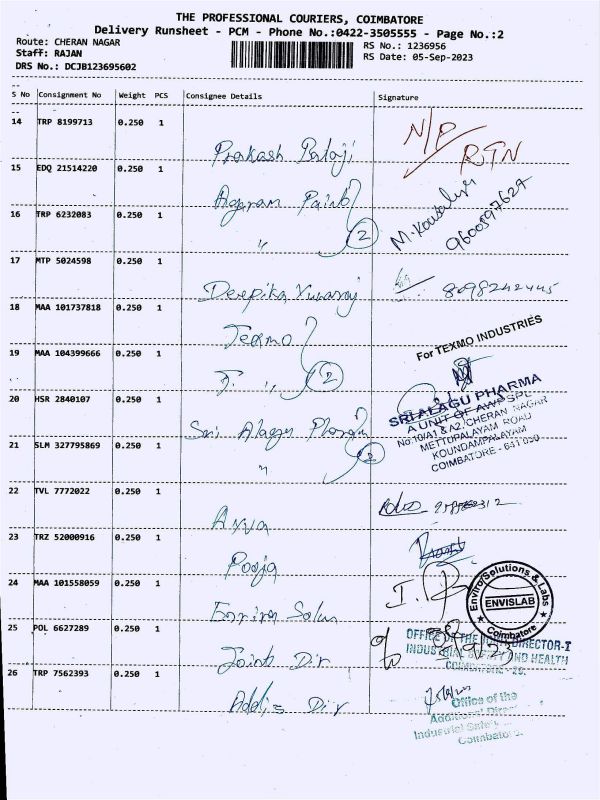 THE PROFESSIONAL COURIERS, COIMBATORE
Delivery Runsheet - PCM - Phone No.:0422-3505555 - Page No.:2
Route: CHERAN NAGAR RS No.: 1236956
Staff: RAJAN RS Date: 05-Sep-2023
DRS No.: DCJB123695602
S No Consignment No Weight PCS Consignee Details Signature
14 TRP 8199713 0.250 1
Prakash Balaji N/P RTN
15 EDQ 21514220 0.250 1
Agaram Paints
16 TRP 6232083 0.250 1
" 2 M. Kousalya 9600897627
17 MTP 5024598 0.250 1
Deepika Yuvaraj 8098242445
18 MAA 101737818 0.250 1
Texmo For TEXMO INDUSTRIES
19 MAA 104399666 0.250 1
T. " 2
20 HSR 2840107 0.250 1
Sri Alagu Pharma
SRI ALAGU PHARMA
A UNIT OF AWPSPL
No.10/A1 & A2, CHERAN NAGAR
METTUPALAYAM ROAD
KOUNDAMPALAYAM
COIMBATORE - 641 030
21 SLM 327795869 0.250 1
" 2
22 TVL 7772022 0.250 1
23 TRZ 52000916 0.250 1
Pooja
24 MAA 101558059 0.250 1
Enviro Solutions & Labs
ENVISLAB
Coimbatore
25 POL 6627289 0.250 1
Joint Dir
OFFICE OF THE JOINT DIRECTOR-I
INDUSTRIAL SAFETY AND HEALTH
COIMBATORE - 25.
26 TRP 7562393 0.250 1
Addl; Dir
Office of the
Additional Director
Industrial Safety
Coimbatore.